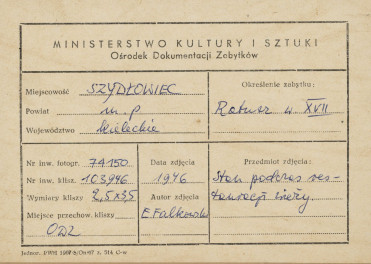 MINISTERSTWO KULTURY I SZTUKI
Ośrodek Dokumentacji Zabytków
Miejscowość SZYDŁOWIEC
Powiat m. p
Województwo kieleckie
Określenie zabytku:
Ratusz w XVII
Nr inw. fotogr. 74150
Nr inw. klisz. 103946
Wymiary kliszy 2,5x3,5
Miejsce przechow. kliszy
ODZ
Data zdjęcia
1946
Autor zdjęcia
E. Falkowski
Przedmiot zdjęcia:
Stan podczas res-
tauracji wieży.